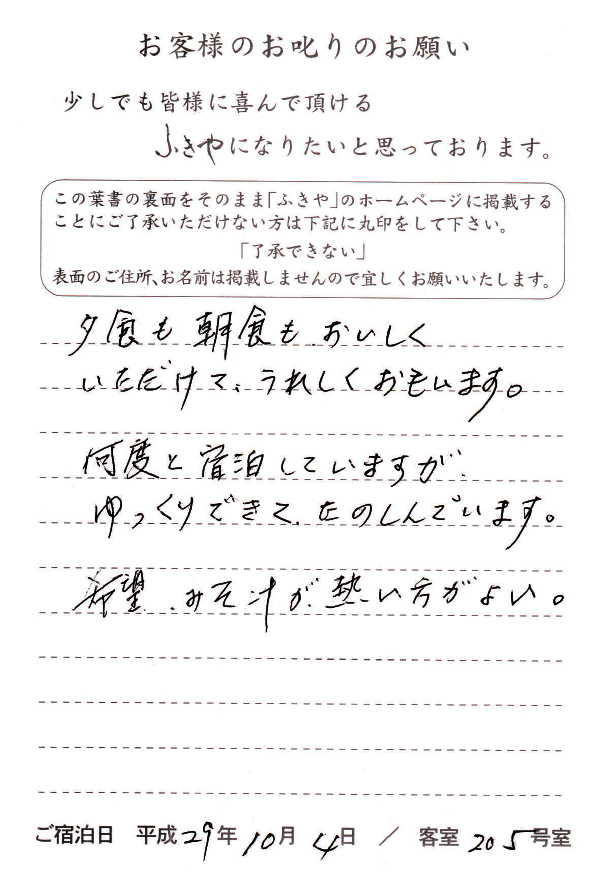 お客様のお叱りのお願い
少しでも皆様に喜んで頂ける
ふきやになりたいと思っております。
この葉書の裏面をそのまま「ふきや」のホームページに掲載する
ことにご了承いただけない方は下記に丸印をして下さい。
「了承できない」
表面のご住所、お名前は掲載しませんので宜しくお願いいたします。
夕食も朝食も、おいしく
いただけて、うれしくおもいます。
何度と宿泊していますが、
ゆっくりできて、たのしんでいます。
希望、みそ汁が、熱い方がよい。
ご宿泊日 平成29年10月4日 / 客室205号室